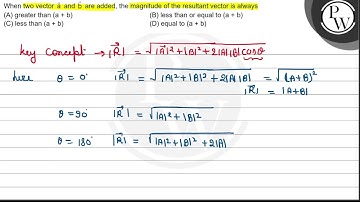 When two vector a⃗ and b⃗ are added, the magnitude of the resultant vector is always
(A) greater than (a + b) (B) less than or equal to (a + b)
(C) less than (a + b) (D) equal to (a + b)
Key Concept → |R⃗| = √|A|² + |B|² + 2|A||B| cosθ
here θ = 0° |R⃗| = √|A|² + |B|² + 2|A||B| = √(A+B)²
|R⃗| = |A+B|
θ = 90° |R⃗| = √|A|² + |B|²
θ = 180° |R⃗| = √|A|² + |B|² + 2|A|